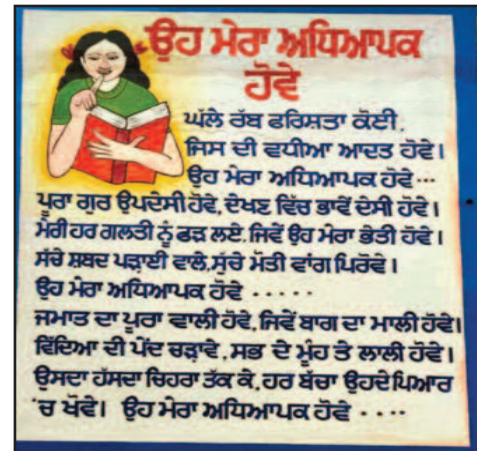 ਉਹ ਮੇਰਾ ਅਧਿਆਪਕ
ਹੋਵੇ
ਘੱਲੇ ਰੱਬ ਫਰਿਸ਼ਤਾ ਕੋਈ,
ਜਿਸ ਦੀ ਵਧੀਆ ਆਦਤ ਹੋਵੇ।
ਉਹ ਮੇਰਾ ਅਧਿਆਪਕ ਹੋਵੇ...
ਪੂਰਾ ਗੁਰ ਉਪਦੇਸੀ ਹੋਵੇ, ਦੇਖਣ ਵਿੱਚ ਭਾਵੇਂ ਦੇਸੀ ਹੋਵੇ।
ਮੇਰੀ ਹਰ ਗਲਤੀ ਨੂੰ ਫੜ ਲਏ, ਜਿਵੇਂ ਉਹ ਮੇਰਾ ਭੇਤੀ ਹੋਵੇ।
ਸੱਚੇ ਸ਼ਬਦ ਪੜ੍ਹਾਈ ਵਾਲੇ, ਸੁੱਚੇ ਮੋਤੀ ਵਾਂਗ ਪਿਰੋਵੇ।
ਉਹ ਮੇਰਾ ਅਧਿਆਪਕ ਹੋਵੇ .....
ਜਮਾਤ ਦਾ ਪੂਰਾ ਵਾਲੀ ਹੋਵੇ, ਜਿਵੇਂ ਬਾਗ ਦਾ ਮਾਲੀ ਹੋਵੇ।
ਵਿੱਦਿਆ ਦੀ ਪੇਂਦ ਚੜ੍ਹਾਵੇ, ਸਭ ਦੇ ਮੂੰਹ ਤੇ ਲਾਲੀ ਹੋਵੇ।
ਉਸਦਾ ਹੱਸਦਾ ਚਿਹਰਾ ਤੱਕ ਕੇ, ਹਰ ਬੱਚਾ ਉਹਦੇ ਪਿਆਰ
'ਚ ਖੋਵੇ। ਉਹ ਮੇਰਾ ਅਧਿਆਪਕ ਹੋਵੇ ....